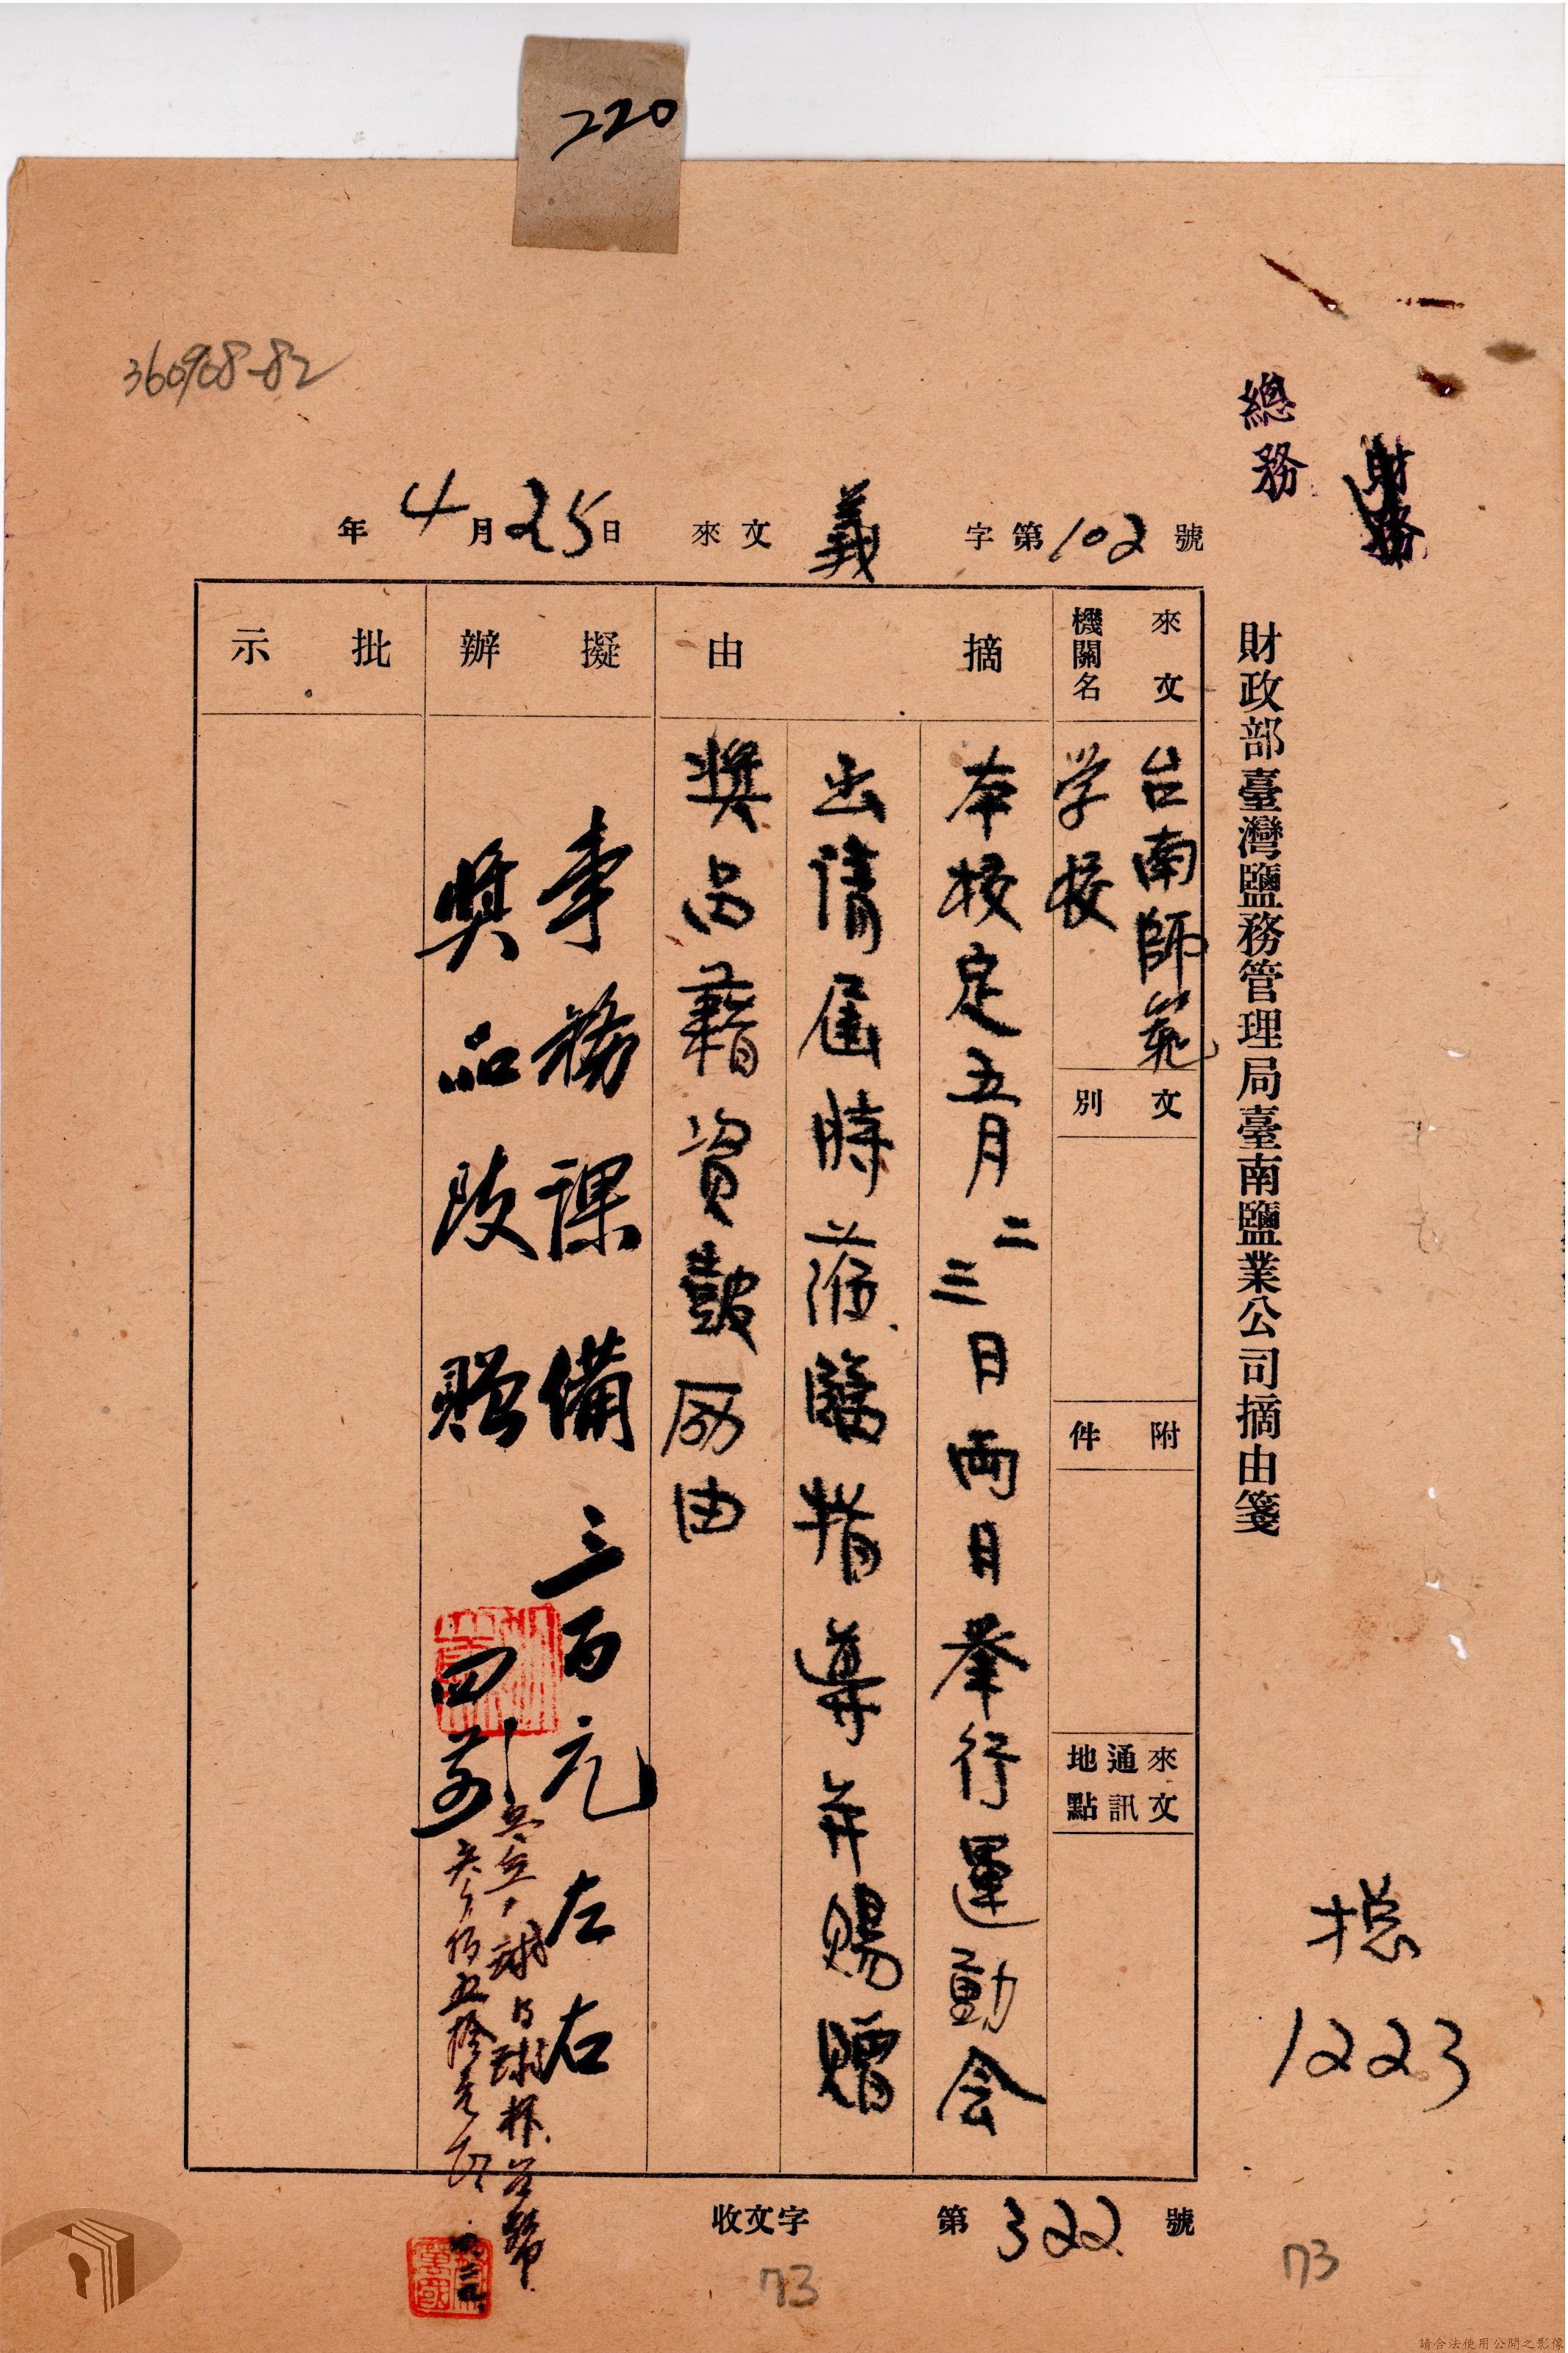 220
360908-82
總務
財務
財政部臺灣鹽務管理局臺南鹽業公司摘由箋
年4月25日 來文 義 字第102號
來文機關名
台南師範
学校
文別
附件
來文通訊地點
摘由
本校定五月二三日両日举行運動会
出请屆時蒞臨指導并賜贈
奬品藉資鼓励由
擬辦
事務課備三百元左右
奬品改贈
批示
收文字 第322號
总
1223
73
73
請合法使用公開之影像